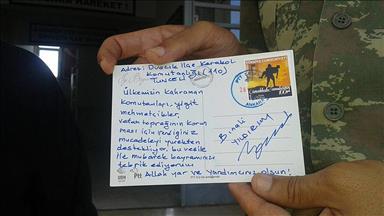 Adres: Ovacık İlçe Karakol
Komutanlığı (110)
TUNCELİ
Ülkemizin kahraman
komutanları, yiğit
mehmetçikler,
vatan toprağının korun
ması için verdiğiniz
mücadeleyi yürekten
destekliyor, bu vesile
ile mübarek bayramınızı
tebrik ediyorum
Allah yar ve Yardımcınız olsun!
Binali
YILDIRIM
TÜRKİYE CUMHURİYETİ
ANKARA
Ptt